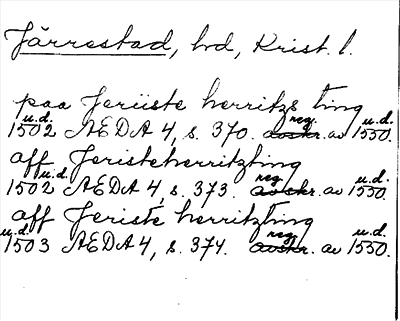 Järrestad, hd, Krist. l.
paa Jeriiste herritzs ting
u.d. reg. u.d.
1502 AEDA 4, s. 370. avskr. av 1550.
aff Jeristeherritzting
u.d. reg. u.d.
1502 AEDA 4, s. 373. avskr. av 1550.
aff Jeriste herritzting
u.d. reg. u.d.
1503 AEDA 4, s. 374. avskr. av 1550.